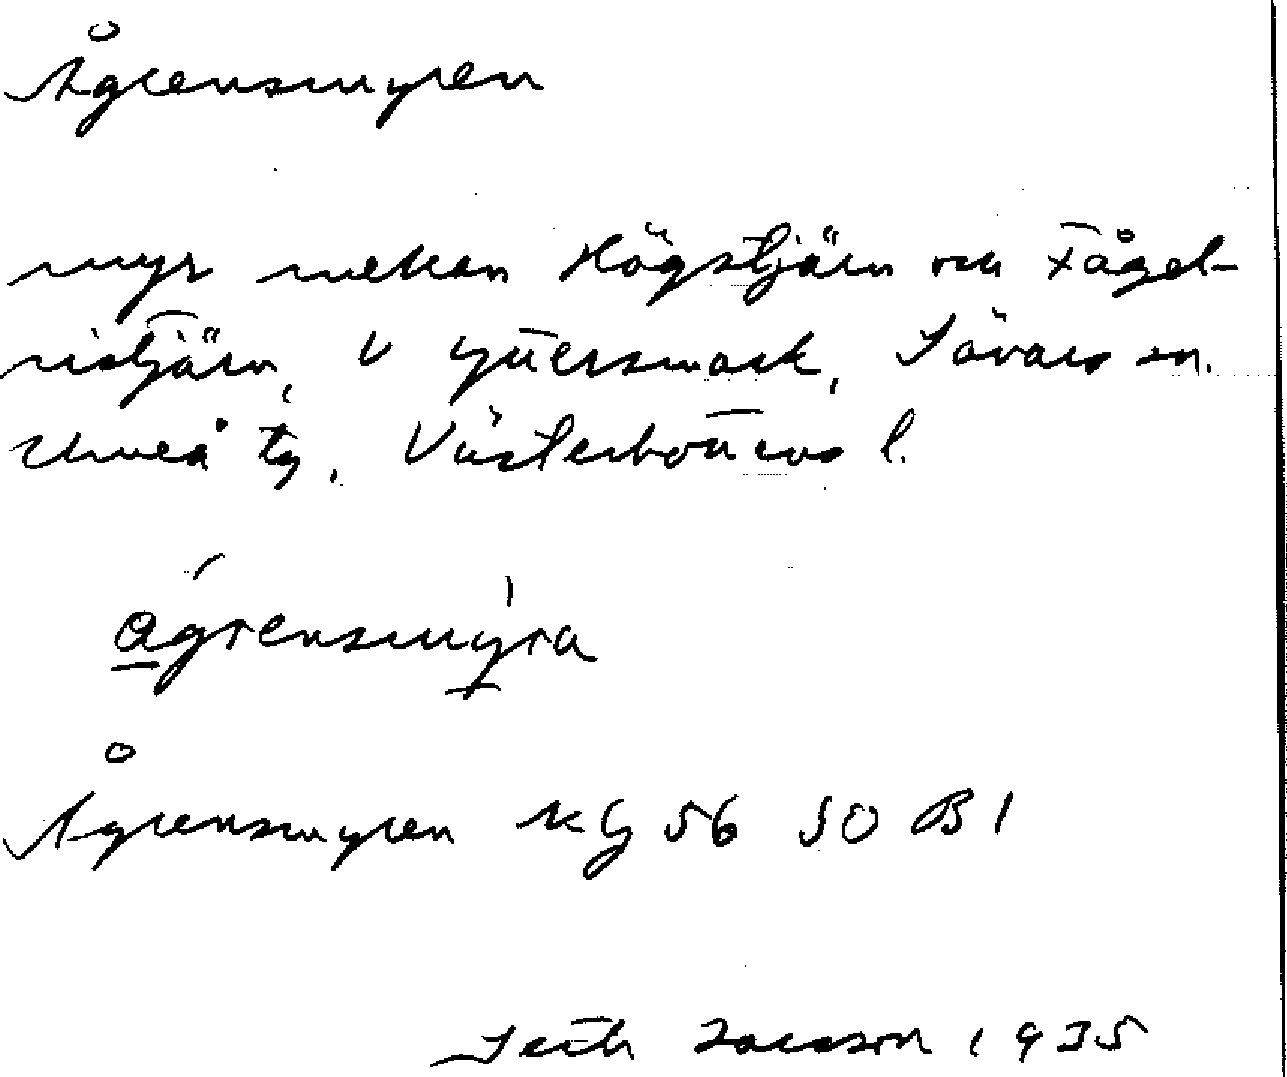 Ågrensmyren
myr mellan Högstjärn och Fågel-
sjötjärn, V Yttersmark, Sävars sn.
Umeå tg, Västerbottens l.
ågrensmyra
Ågrensmyren kg 56 SO B1
Seth Jansson 1935